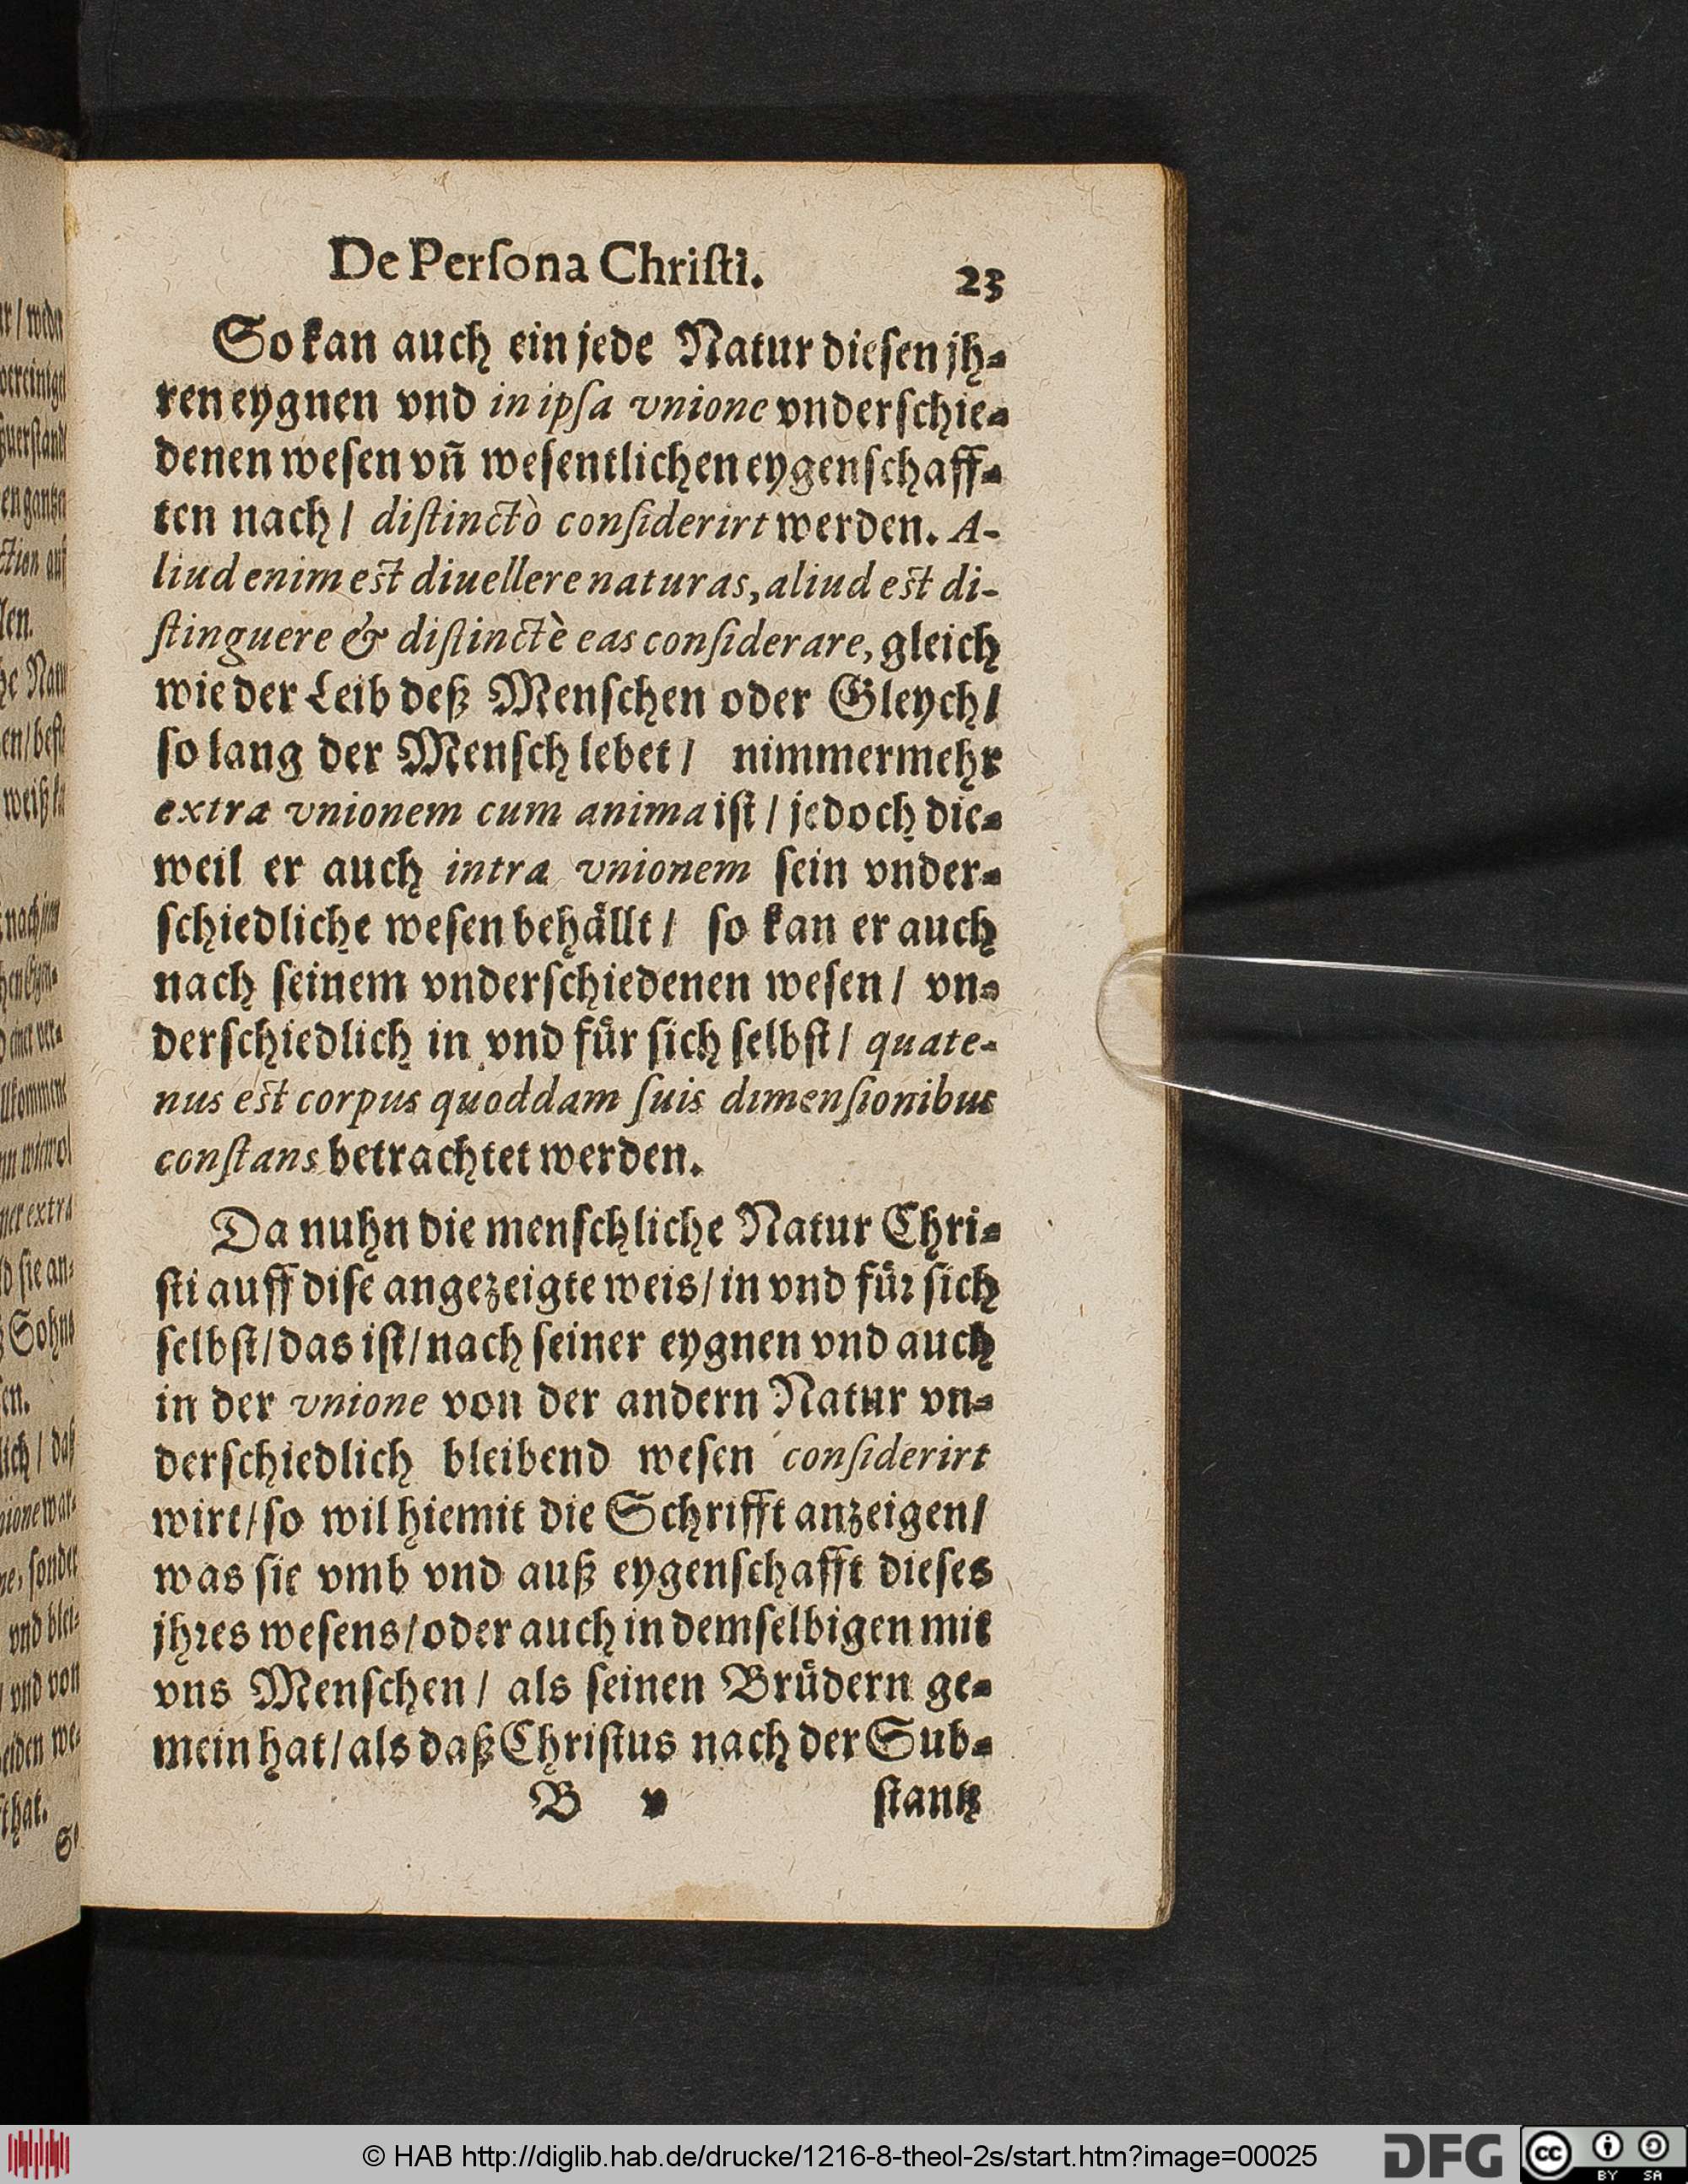 De Perſona Chriſti. 23
So kan auch ein jede Natur dieſen jh⸗
ren eygnen vnd in ipſa vnione vnderſchie⸗
denen weſen vñ weſentlichen eygenſchaff⸗
ten nach/ diſtinctò conſiderirt werden. A-
liud enim eſt diuellere naturas, aliud eſt di-
ſtinguere & diſtinctè eas conſiderare, gleich
wie der Leib deß Menſchen oder Gleych/
ſo lang der Menſch lebet/ nimmermehr
extra vnionem cum anima iſt/ jedoch die⸗
weil er auch intra vnionem ſein vnder⸗
ſchiedliche weſen behåŧllt/ ſo kan er auch
nach ſeinem vnderſchiedenen weſen/ vn⸗
derſchiedlich in vnd fuͤr ſich ſelbſt/ quate-
nus eſt corpus quoddam ſuis dimenſionibus
conſtans betrachtet werden.
Da nuhn die menſchliche Natur Chri⸗
ſti auff diſe angezeigte weis/ in vnd fuͤr ſich
ſelbſt/ das iſt/ nach ſeiner eygnen vnd auch
in der vnione von der andern Natur vn⸗
derſchiedlich bleibend weſen conſiderirt
wirt/ ſo wil hiemit die Schrifft anzeigen/
was ſie vmb vnd auß eygenſchafft dieſes
jhres weſens/ oder auch in demſelbigen mit
vns Menſchen/ als ſeinen Bruͤdern ge⸗
mein hat/ als daß Chriſtus nach der Sub⸗
B v ſtantz
© HAB http://diglib.hab.de/drucke/1216-8-theol-2s/start.htm?image=00025
DFG
cc
BY SA